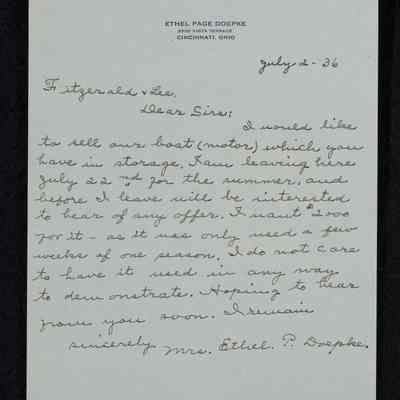 ETHEL PAGE DOEPKE
VISTA TERRACE
CINCINNATI, OHIO
July 2 - 36
Fitzgerald & Lee.
Dear Sirs:
I would like
to sell our boat (motor) which you
have in storage. I am leaving here
July 22nd for the summer, and
before I leave will be interested
to hear of any offer. I want $2000
for it - as it was only used a few
weeks of one season. I do not care
to have it used in any way
to demonstrate. Hoping to hear
from you soon. I remain
sincerely Mrs. Ethel. P. Doepke.